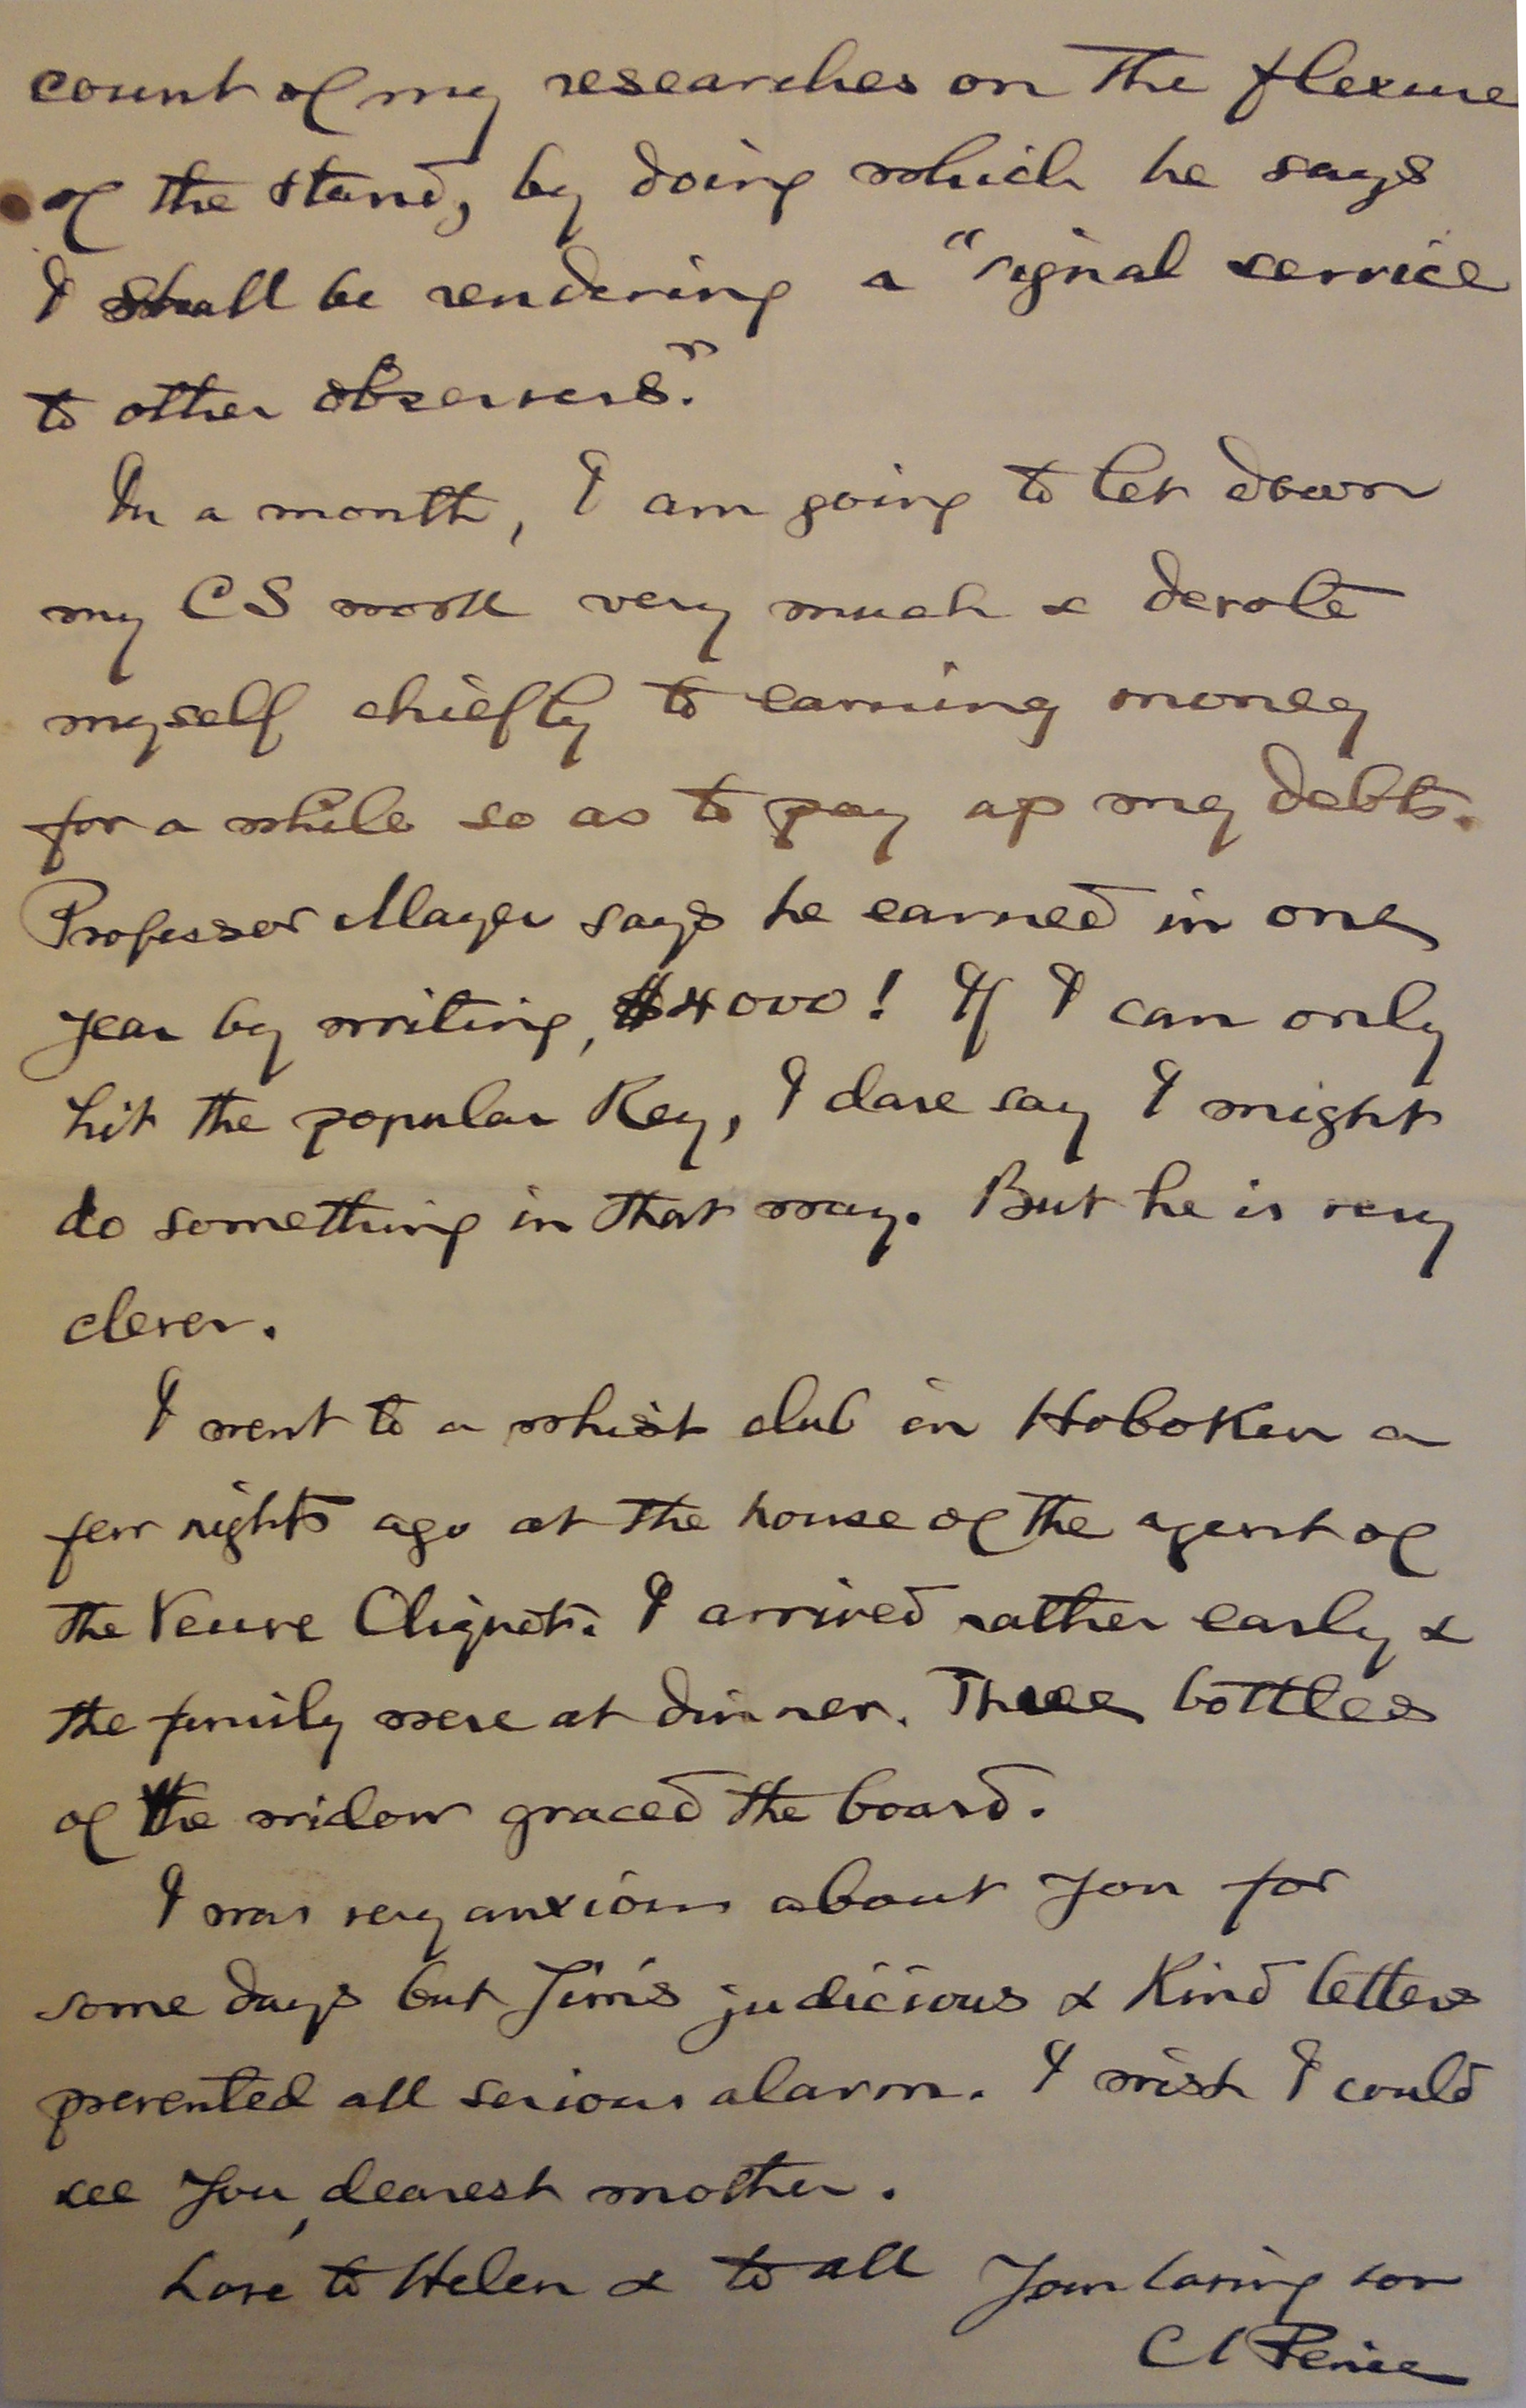 count of my researches on the flexure
of the stand, by doing which he says
I shall be rendering a "signal service
to other observers."
In a month, I am going to let down
my CS work very much & devote
myself chiefly to earning money
for a while so as to pay up my debts.
Professor Mayer says he earned in one
year by writing, $4000! If I can only
hit the popular Key, I dare say I might
do something in that way. But he is very
clever.
I went to a whist club in Hoboken a
few nights ago at the house of the agent of
the Veuve Cliquot. I arrived rather early &
the family were at dinner. Three bottles
of the widow graced the board.
I was very anxious about you for
some days but Jim's judicious & Kind letters
prevented all serious alarm. I wish I could
see you, dearest mother.
Love to Helen & to all Your loving son
CS Peirce